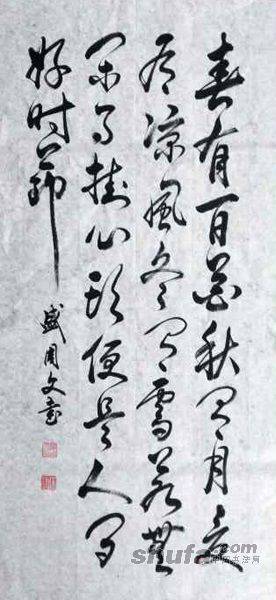 春有百花秋有月夏
有凉风冬有雪若無
闲事挂心头便是人间
好时節
盛周文书
shufa.com